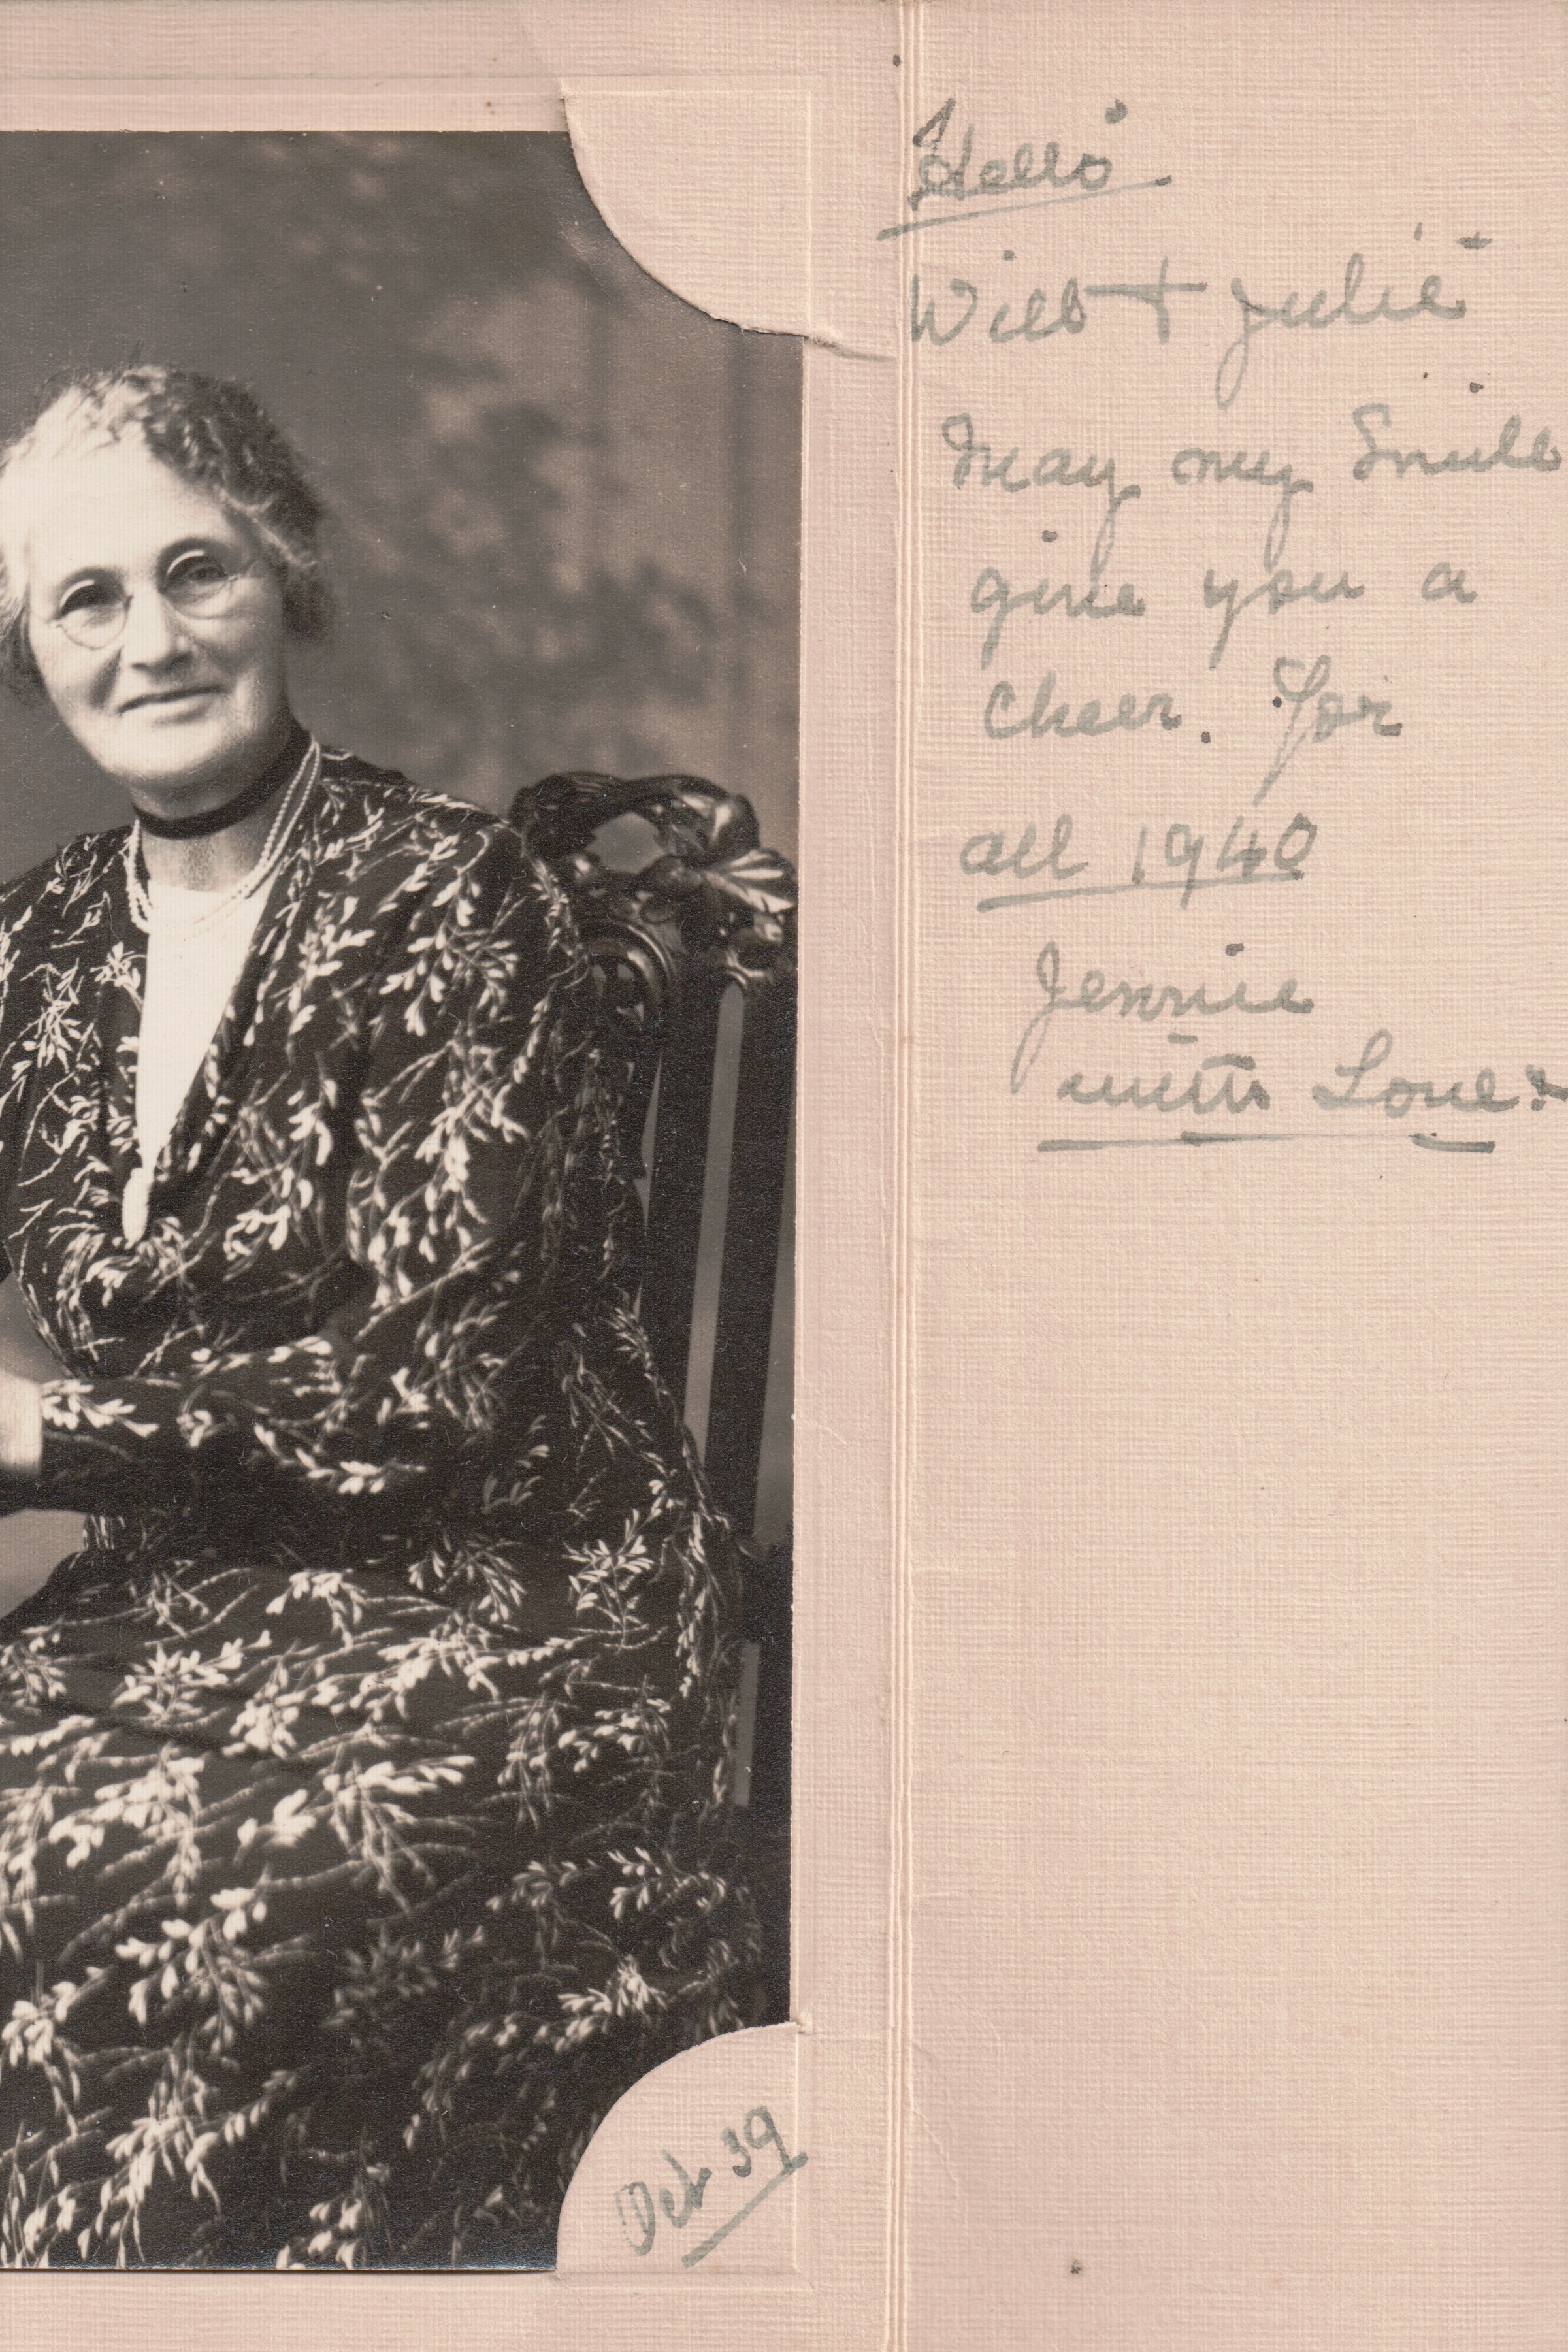 Hello
Will + Julie
May my Smile
give you a
Cheer. For
all 1940
Jennie
with Love
Oct 39